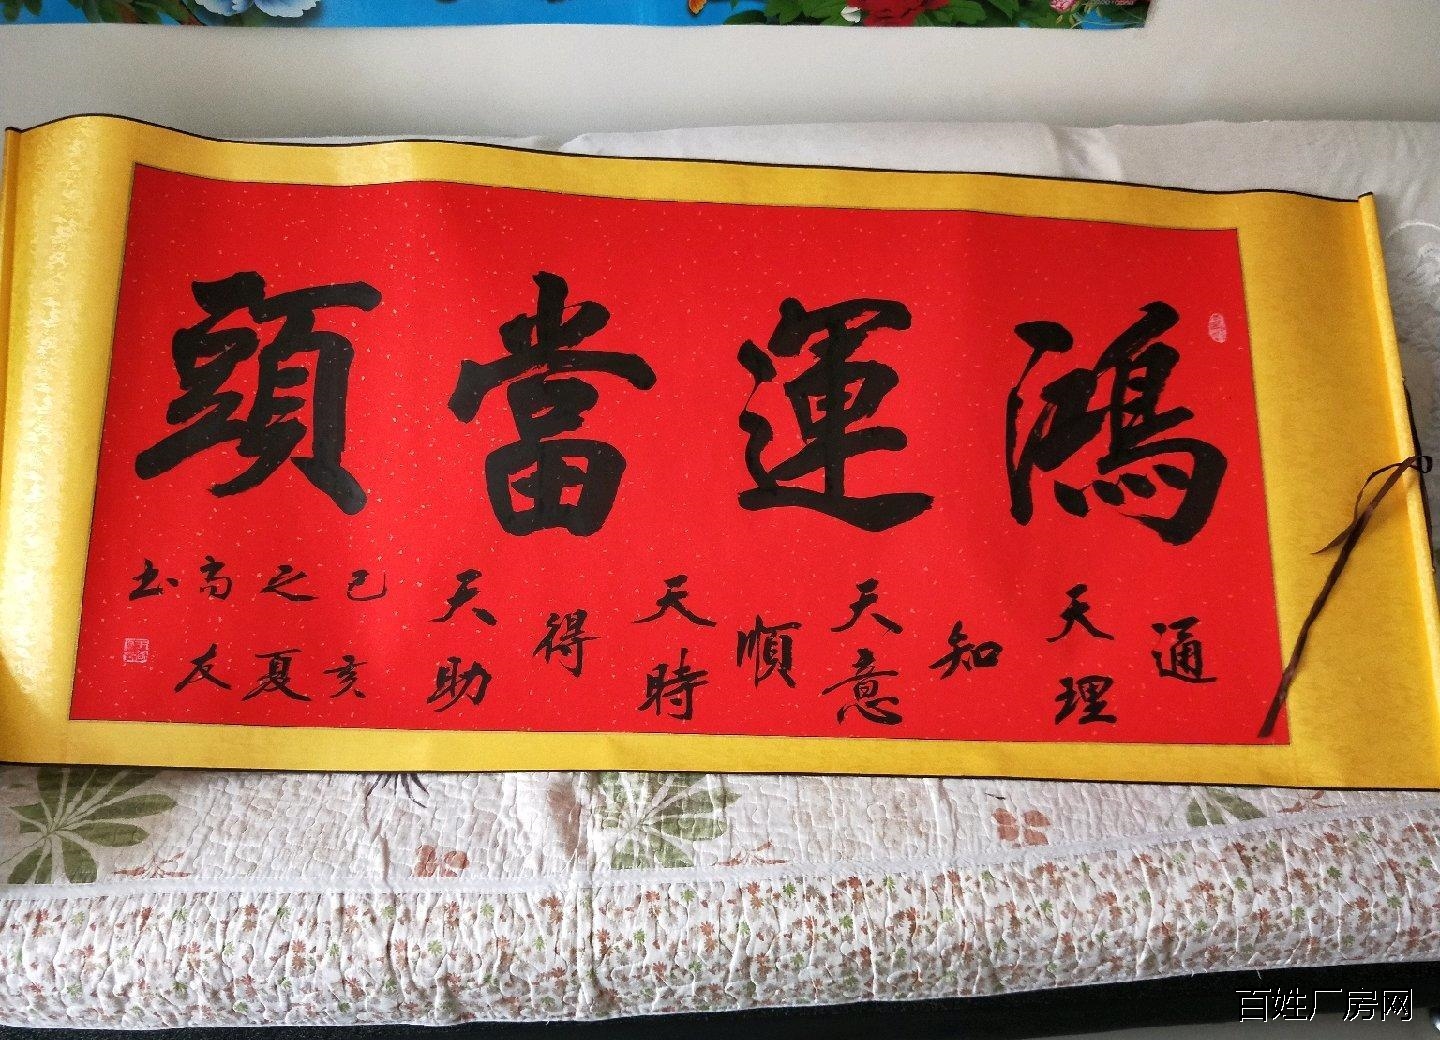 鴻運當頭
通天理
知天意
順天時
得天助
己亥
之夏
高友
书
百姓厂房网